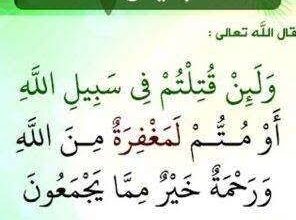 قال الله تعالى :
وَلَئِنْ قُتِلْتُمْ فِى سَبِيلِ اللَّهِ
أَوْ مُتُّمْ لَمَغْفِرَةٌ مِنَ اللَّهِ
وَرَحْمَةٌ خَيْرٌ مِمَّا يَجْمَعُونَ